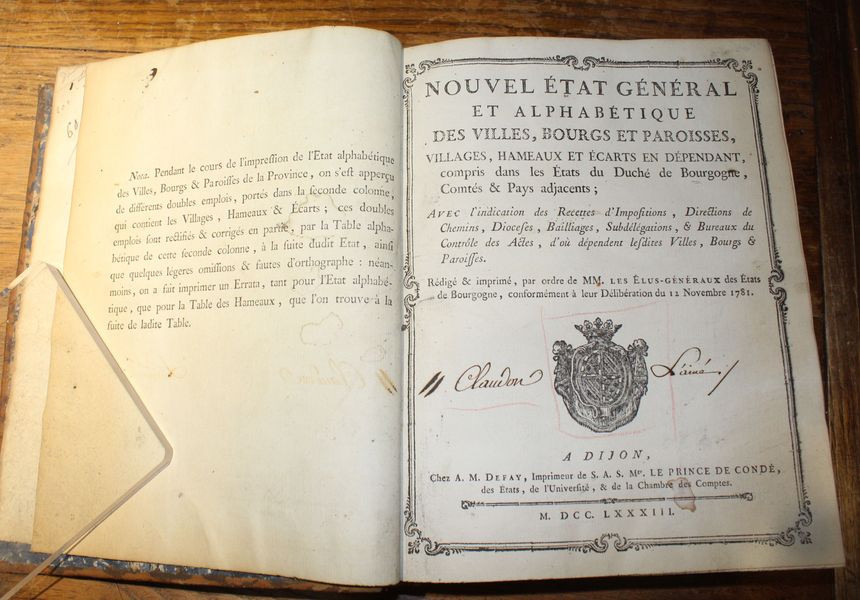 Nota. Pendant le cours de l'impreſſion de l'Etat alphabétique
des Villes, Bourgs & Paroiſſes de la Province, on s'eſt apperçu
de différents doubles emplois, portés dans la ſeconde colonne,
qui contient les Villages, Hameaux & Écarts ; ces doubles
emplois ſont rectifiés & corrigés en partie, par la Table alpha-
bétique de cette ſeconde colonne, à la ſuite dudit Etat, ainſi
que quelques légeres omiſſions & fautes d'orthographe : néan-
moins, on a fait imprimer un Errata, tant pour l'Etat alphabé-
tique, que pour la Table des Hameaux, que l'on trouve à la
ſuite de ladite Table.
NOUVEL ÉTAT GÉNÉRAL
ET ALPHABÉTIQUE
DES VILLES, BOURGS ET PAROISSES,
VILLAGES, HAMEAUX ET ÉCARTS EN DÉPENDANT,
compris dans les États du Duché de Bourgogne,
Comtés & Pays adjacents ;
AVEC l'indication des Recettes d'Impoſitions, Directions de
Chemins, Dioceſes, Bailliages, Subdélégations, & Bureaux du
Contrôle des Actes, d'où dépendent leſdites Villes, Bourgs &
Paroiſſes.
Rédigé & imprimé, par ordre de MM. LES ÉLUS-GÉNÉRAUX des États
de Bourgogne, conformément à leur Délibération du 12 Novembre 1781.
Claudon L'ainé
A DIJON,
Chez A. M. DEFAY, Imprimeur de S. A. S. Mgr. LE PRINCE DE CONDÉ,
des États, de l'Univerſité, & de la Chambre des Comptes.
M. DCC. LXXXIII.